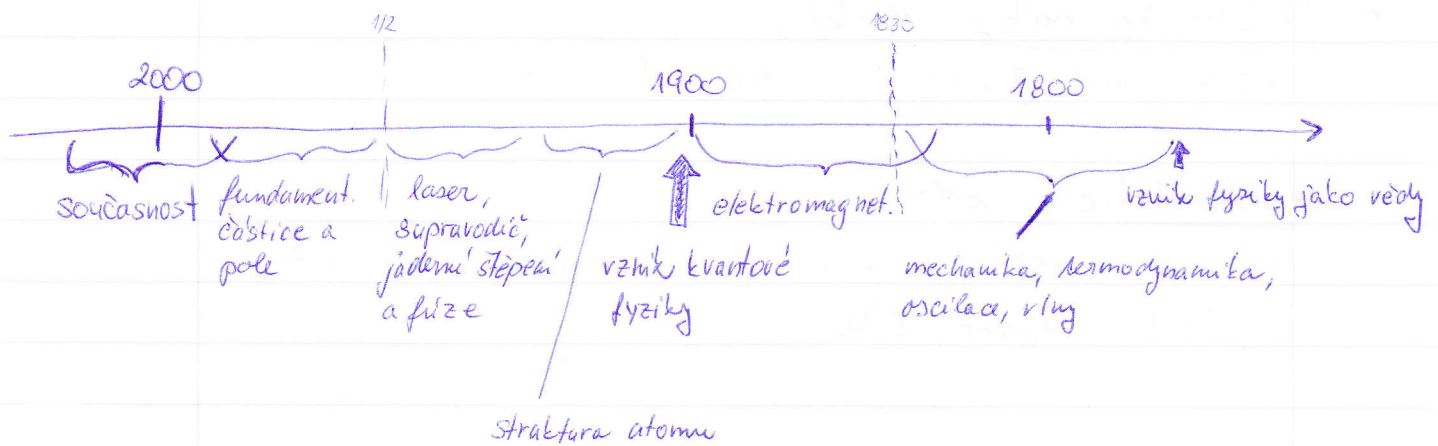 1/2
1830
2000
1900
1800
současnost
fundament.
částice a
pole
laser,
supravodič,
jaderné štěpení
a fúze
vznik kvantové
fyziky
elektromagnet.
mechanika, termodynamika,
oscilace, vlny
vznik fyziky jako vědy
struktura atomu